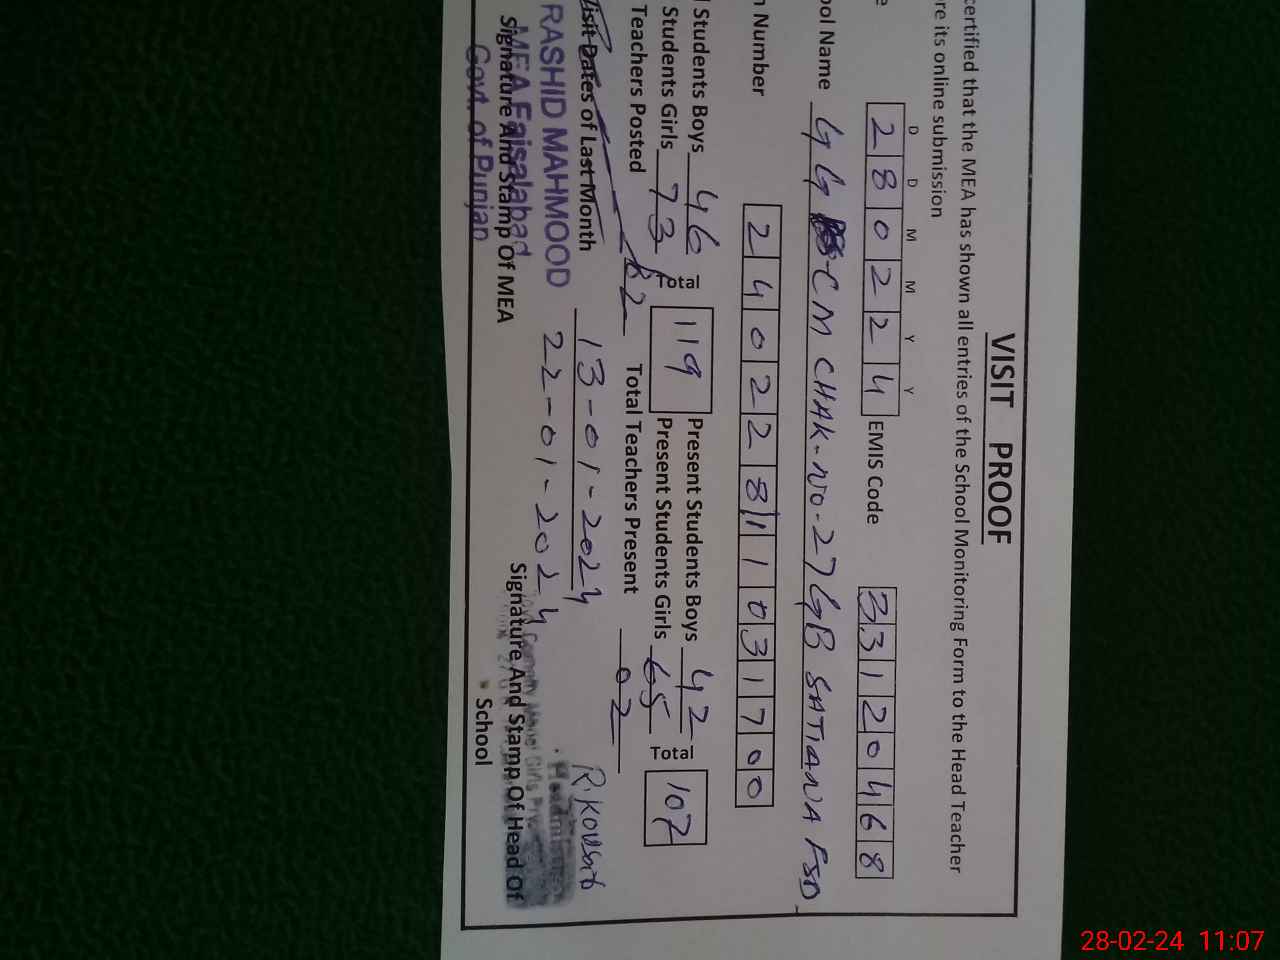 VISIT PROOF
certified that the MEA has shown all entries of the School Monitoring Form to the Head Teacher
re its online submission
D D M M Y Y
e 2 8 0 2 2 4 EMIS Code 3 3 1 2 0 4 6 8
ool Name GG CM CHAK-NO-27 GB SATIANA FSD
n Number 2 4 0 2 2 8 1 1 0 3 1 7 0 0
l Students Boys 46 Present Students Boys 42
Students Girls 73 Total 119 Present Students Girls 65 Total 107
Teachers Posted 02 Total Teachers Present 02
Visit Dates of Last Month 13-01-2024
22-01-2024
R.Kousar
RASHID MAHMOOD
MEA Faisalabad
Govt. of Punjab
Signature And Stamp Of MEA
Signature And Stamp Of Head Of
School
28-02-24 11:07